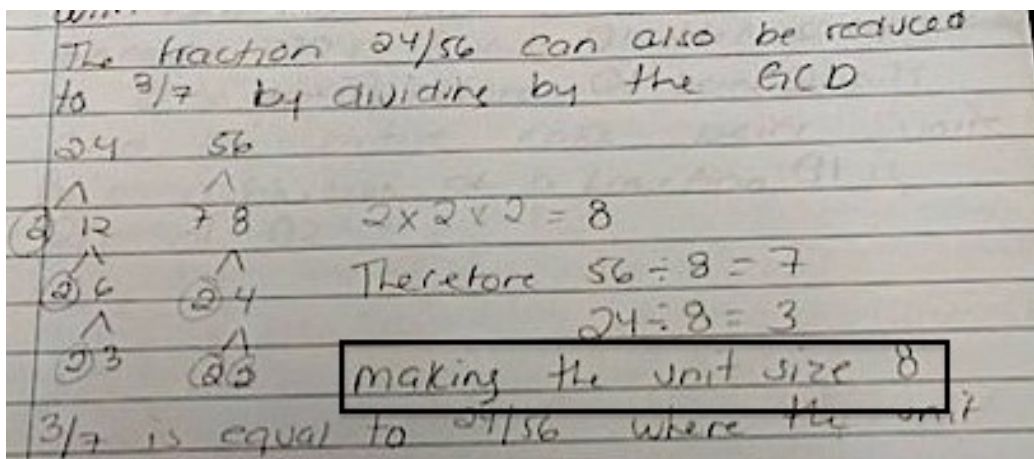 The fraction 24/56 can also be reduced
to 3/7 by dividing by the GCD
24 56
2 12 7 8 2 x 2 x 2 = 8
2 6 2 4 Therefore 56 ÷ 8 = 7
24 ÷ 8 = 3
2 3 2 2 making the unit size 8
3/7 is equal to 24/56 where the unit